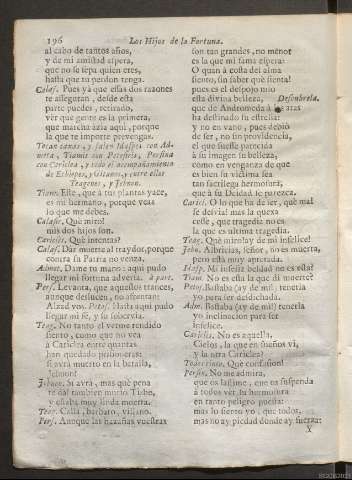 196 Los Hijos de la Fortuna.
al cabo de tantos años,
y de mi amistad espera,
que no se sepa quien eres,
hasta que tu perdon tenga.
Calas. Pues yà que essas dos razones
te asseguran, desde esta
parte puedes, retirado,
vèr que gente es la primera,
que marcha àzia aqui, porque
la que te importe prevengas.
Tocan caxas, y salen Idaspes con Admeta,
Tiamis con Petosiris, Persina
con Cariclea, y todo el acompañamiento
de Etiopes, y Gitanos, y entre ellos
Teagenes, y Jebnon.
Tiam. Este, que à tus plantas yace,
es mi hermano, porque veas
lo que me debes.
Calasir. Què miro!
mis dos hijos son.
Caricles. Què intentas?
Calas. Dàr muerte al traydor, porque
contra su Patria no venza.
Admet. Dame tu mano: aqui pudo
llegar mi fortuna adversa. à parte.
Pers. Levanta, que aquestos trances,
aunque deslucen, no afrentan:
Alzad vos. Petos. Hasta aqui pudo
llegar mi fè, y su sobervia.
Teag. No tanto el verme rendido
siento, como que no vea
à Cariclea entre quantas
han quedado prisioneras:
si avrà muerto en la batalla,
Jebnon?
Jebnon. Si avrà, mas què pena
te dà? tambien muriò Tisbe,
y estaba muy linda muerta.
Teag. Calla, barbaro, villano.
Pers. Aunque las hazañas vuestras
son tan grandes, no menor
es la que mi fama espera:
O quan à costa del alma
siento, sin saber què sienta!
pues es el despojo mio
esta divina belleza, Descubrela.
que de Andromeda à aras
ha destinado su estrella:
y no en vano, pues debiò
de ser, no sin providencia,
el que fuesse parecida
à su imagen su belleza,
como en venganza de que
es bien su victima sea
tan sacrilega hermosura,
que à su Deidad se parezca.
Caricl. O lo que ha de ser, què mal
se desvia! mas la quexa
cesse, que tragedia no es
la que es ultima tragedia.
Teag. Què miro! ay de mi infelice!
Jebn. Albricias, señor, no es muerta,
pero està muy apretada.
Idasp. Mi infeliz beldad no es esta?
Tiam. No es esta la que dì muerte?
Petos. Bastaba (ay de mi!) tenerla
yo para ser desdichada.
Adm. Bastaba (ay de mi!) tenerla
yo inclinacion para ser
infelice.
Caricles. No es aquella,
Cielos, la que en sueños vì,
y la otra Cariclea?
Todos unos. Que confusion!
Persin. No me admira,
que os lastime, que os suspenda
à todos vèr su hermosura
en tanto peligro puesta:
mas lo siento yo, que todos,
mas no ay piedad donde ay fuerza:
X